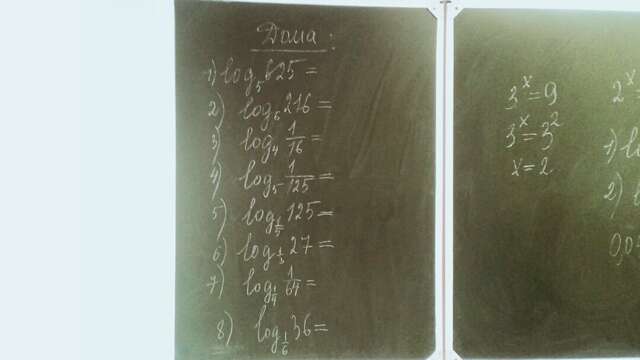 Дома:
1) log₅625=
2) log₆216=
3) log₄ 1/16=
4) log₅ 1/125=
5) log_1/5 125=
6) log_1/3 27=
7) log_1/4 1/64=
8) log_1/6 36=
3ˣ=9
3ˣ=3²
x=2
2ˣ
1)
2)